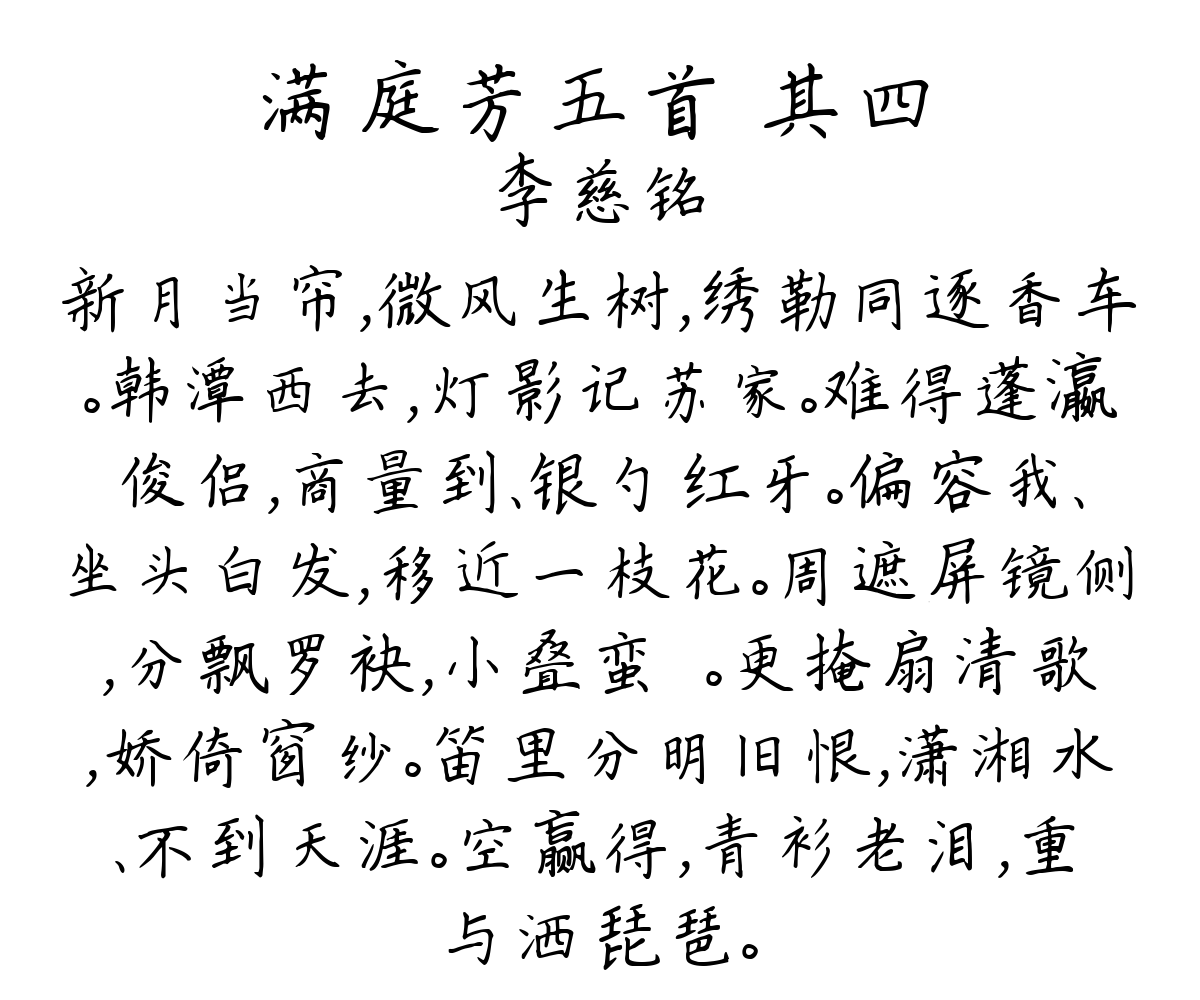 满庭芳五首 其四
李慈铭
新月当帘,微风生树,绣勒同逐香车
。韩潭西去,灯影记苏家。难得蓬瀛
俊侣,商量到、银勺红牙。偏容我、
坐头白发,移近一枝花。周遮屏镜侧
,分飘罗袂,小叠蛮 。更掩扇清歌
,娇倚窗纱。笛里分明旧恨,潇湘水
、不到天涯。空赢得,青衫老泪,重
与洒琵琶。